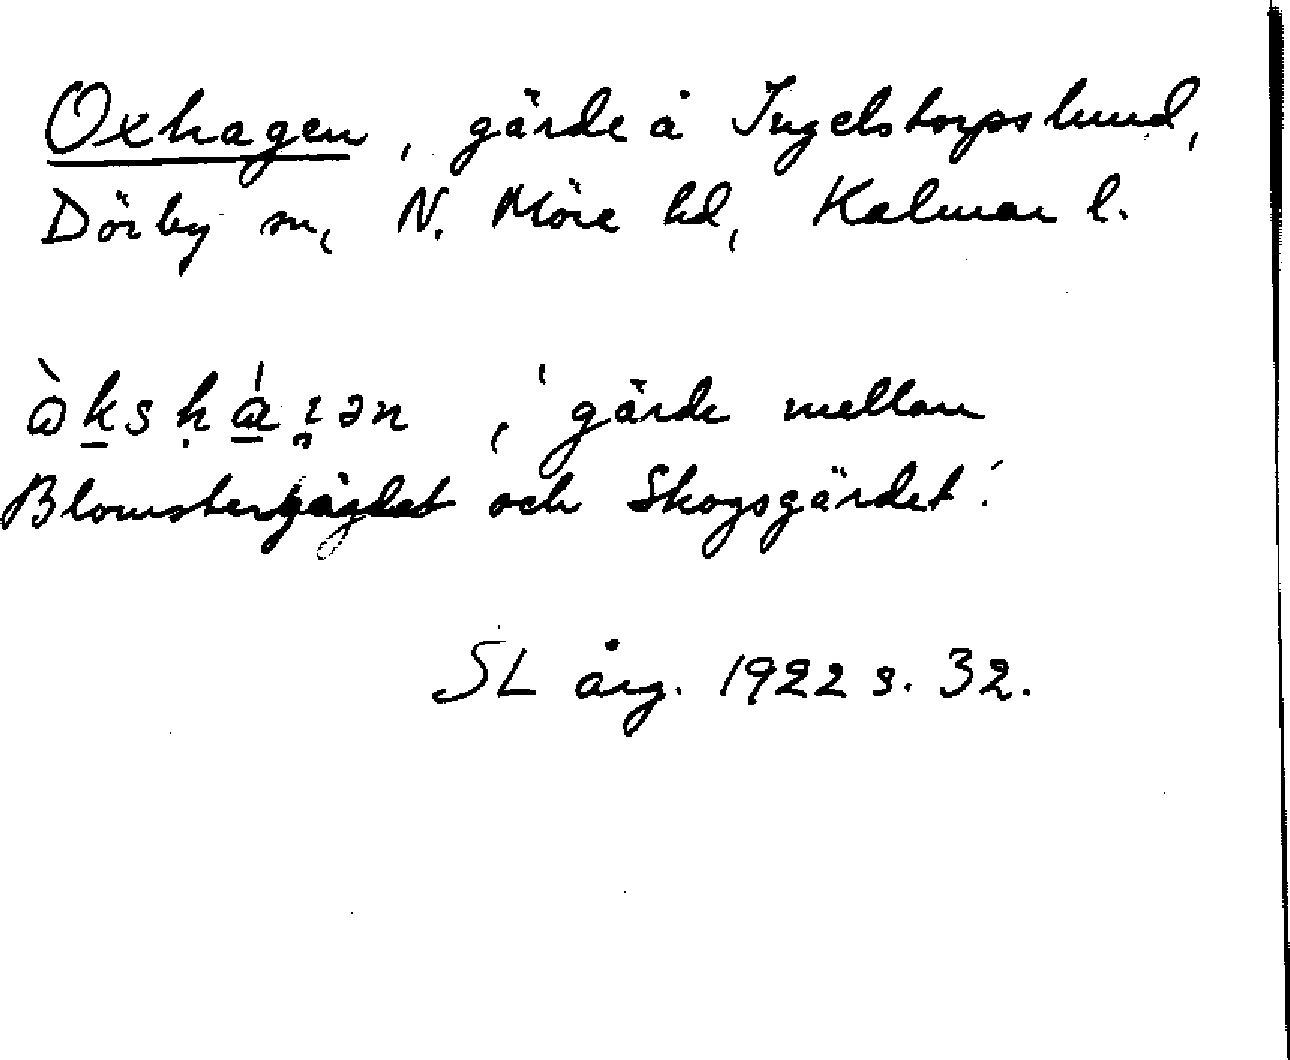 Oxhagen, gärde å Ingelstorpslund,
Dörby sn, N. Möre hd, Kalmar l.
, 'gärde mellan
Blomstergärdet och Skogsgärdet.'
SL årg. 1922 s. 32.